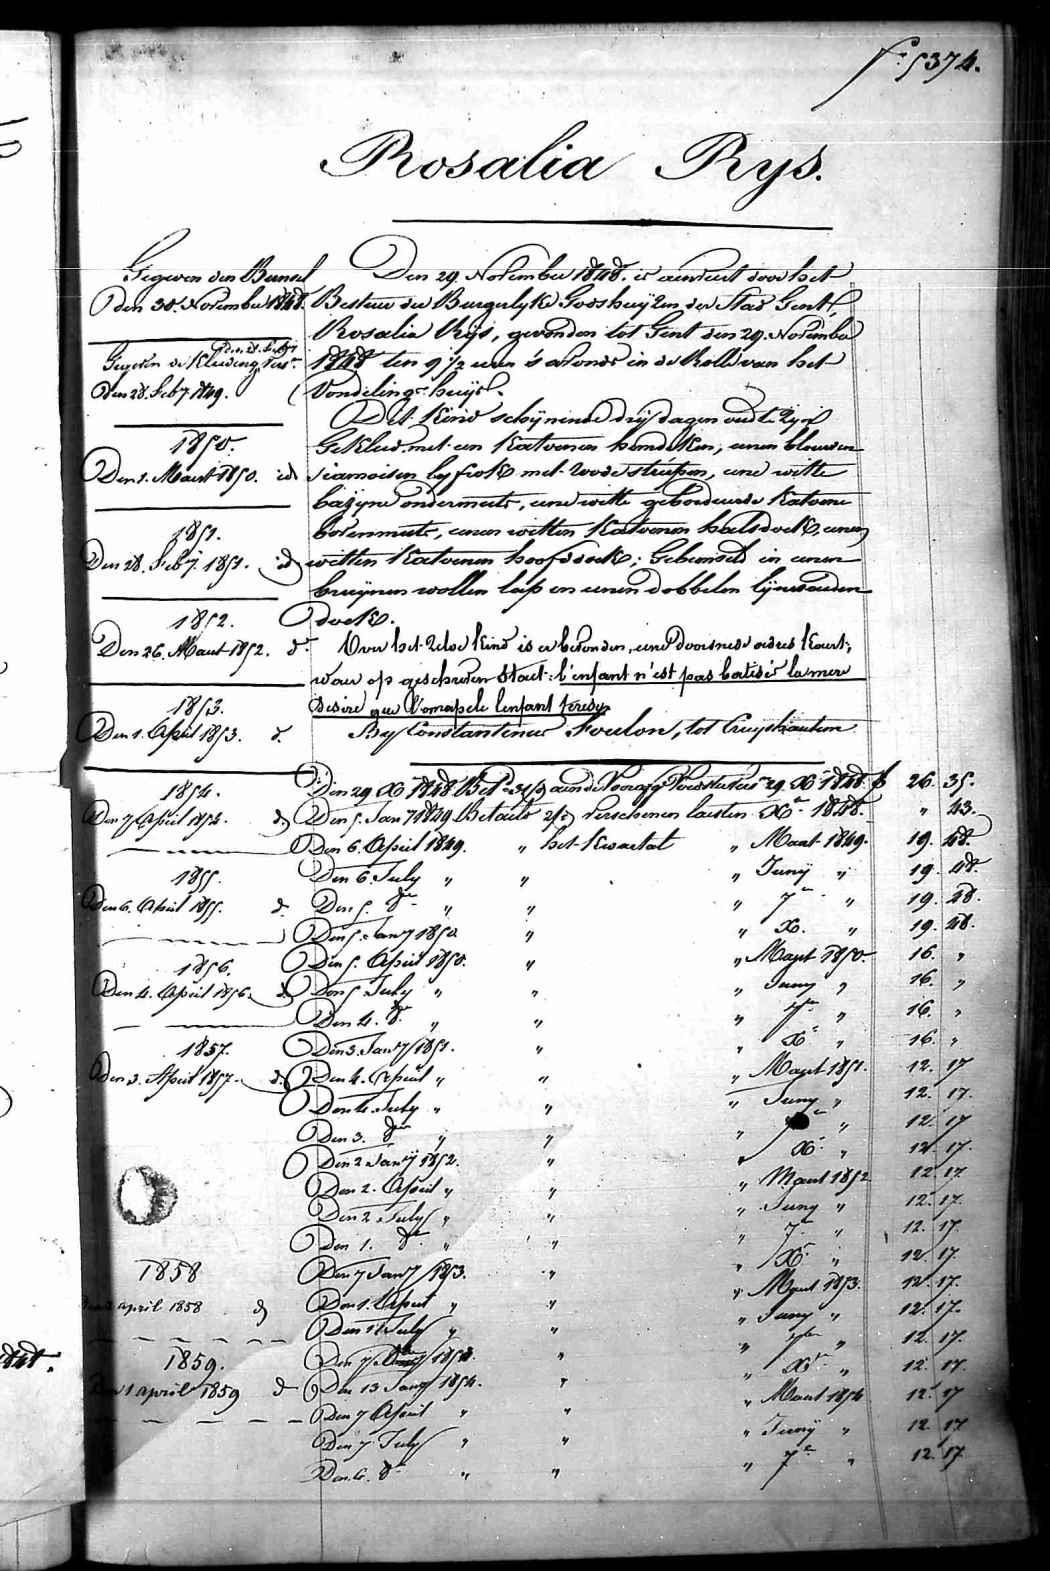 f° 5374.
Rosalia Rys.
Gegeven den Bunsel
Den 30. November 1848.
Gegeven de Kleeding
Den 28. Feb.y 1849.
1850.
Den 1. Maert 1850. id
1851.
Den 28. Feb.y 1851. id
1852.
Den 26. Maert 1852. d°
1853.
Den 1. April 1853. d°
1854.
Den 7 April 1854. d°
1855.
Den 6. April 1855. d°
1856.
Den 4. April 1856. d°
1857.
Den 3. April 1857. d°
1858
april 1858 d°
1859.
Den 1 april 1859 d°
Den 29. November 1848. is aenveert door het
Bestuer der Burgelyke Godshuyzen der Stad Gent,
Rosalia Rys, gevonden tot Gent den 29. November
1848 ten 9 1/2 uren 's avonds in de Rolle van het
Vondelingshuys.
Dit Kind schynende dry dagen oud te zyn
Gekleed met een Katoenen hemdeken, eenen blauwen
siamoisen lyfrok met roode streepen, eene witte
bazyne ondermuts, eene witte geborduerde Katoene
bovenmuts, eenen witten Katoenen halsdoek, eenen
witten Katoenen hoofddoek; Gebunseld in eenen
bruynen wollen lap en eenen dobbelen lynwaeden
doek.
Over het zelve Kind is er bevonden, eene doorsnede Kaert,
waer op geschreven staet: l'enfant n'est pas batisér la mere
desire que l'on apele lenfant
By Constantinus Foulon, tot Cruyshautem
Den 29 Xb 1848 Bet. 29 Xb 1848. f 26. 35.
Den 5. Jan.y 1849 Betaeld verschenen laesten Xb 1848. " 43.
Den 6. April 1849. " het Kwartael " Maert 1849. 19. 48.
Den 6. July " " " Juny " 19. 48.
Den 5. 8br " " " 7br " 19. 48.
Den 5. Jan.y 1850 " " Xb. " 19. 48.
Den 5. April 1850. " " Maert 1850. 16. "
Den 5 July " " " Juny " 16. "
Den 4. 8br " " " 7br " 16. "
Den 3. Jan.y 1851. " " Xb " 16. "
Den 4. April " " " Maert 1851. 12. 17
Den 4. July " " " Juny " 12. 17.
Den 3. 8br " " " 7br " 12. 17
Den 2 Jan.y 1852. " " Xb. " 12. 17.
Den 2. April " " " Maert 1852 12. 17
Den 2 July " " " Juny " 12. 17.
Den 1. 8br " " " 7br " 12. 17.
Den 7 Jan.y 1853. " " Xb. " 12. 17.
Den 1. April " " " Maert 1853. 12. 17.
Den 1 July " " " Juny " 12. 17.
Den 7 8br 1853. " " 7br " 12. 17.
Den 13 Jan.y 1854. " " Xb. " 12. 17.
Den 7 April " " " Maert 1854 12. 17
Den 7 July " " " Juny " 12. 17
Den 6. 8br " " " 7br " 12. 17.
1848.